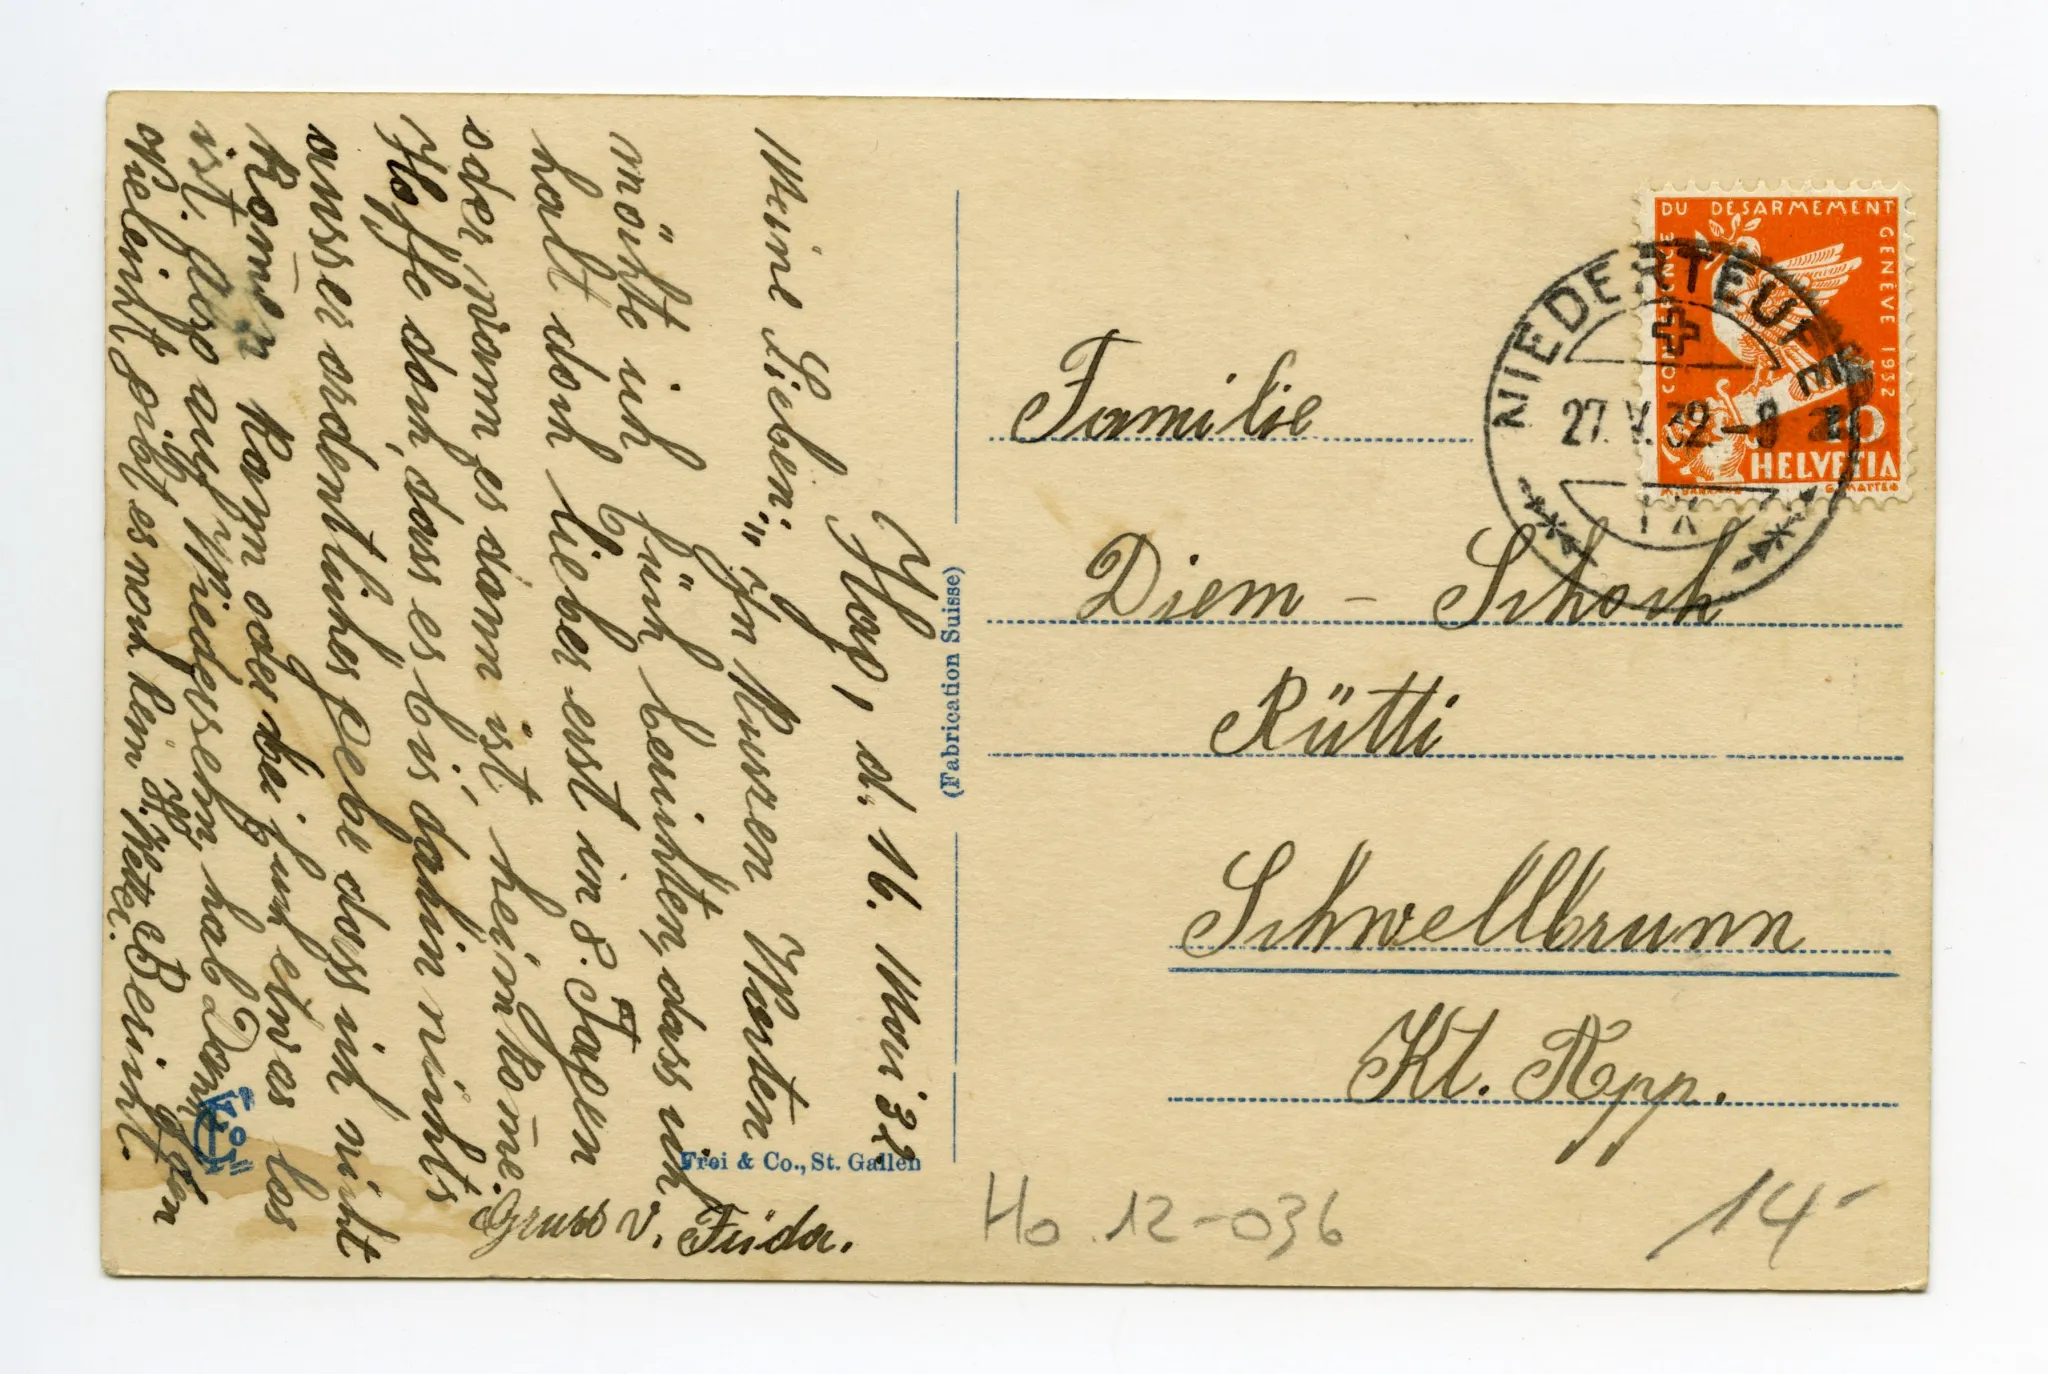 Hag, d. 16. Mai 32
Meine Lieben: "In kurzen Worten
möchte ich Euch berichten, dass ich
halt doch lieber erst in 8. Tagen
oder wann es dann ist, heimkom̄e.
Hoffe doch, dass es bis dahin nichts
ausserordentliches gebe dass ich nicht
kom̄en kann oder bei euch etwas los
ist. Also auf Wiedersehn, hab Dank
Vielleicht gibt es noch kein
Bericht.
Gruss v. Frida.
Frei & Co., St. Gallen
(Fabrication Suisse)
DU DESARMEMENT
GENÈVE 1932
10
HELVETIA
NIEDERTEUFEN
27. V. 32. - 8
Familie
Diem - Schoch
Rütti
Schwellbrunn
Kt. App.
Ho. 12-036
14-